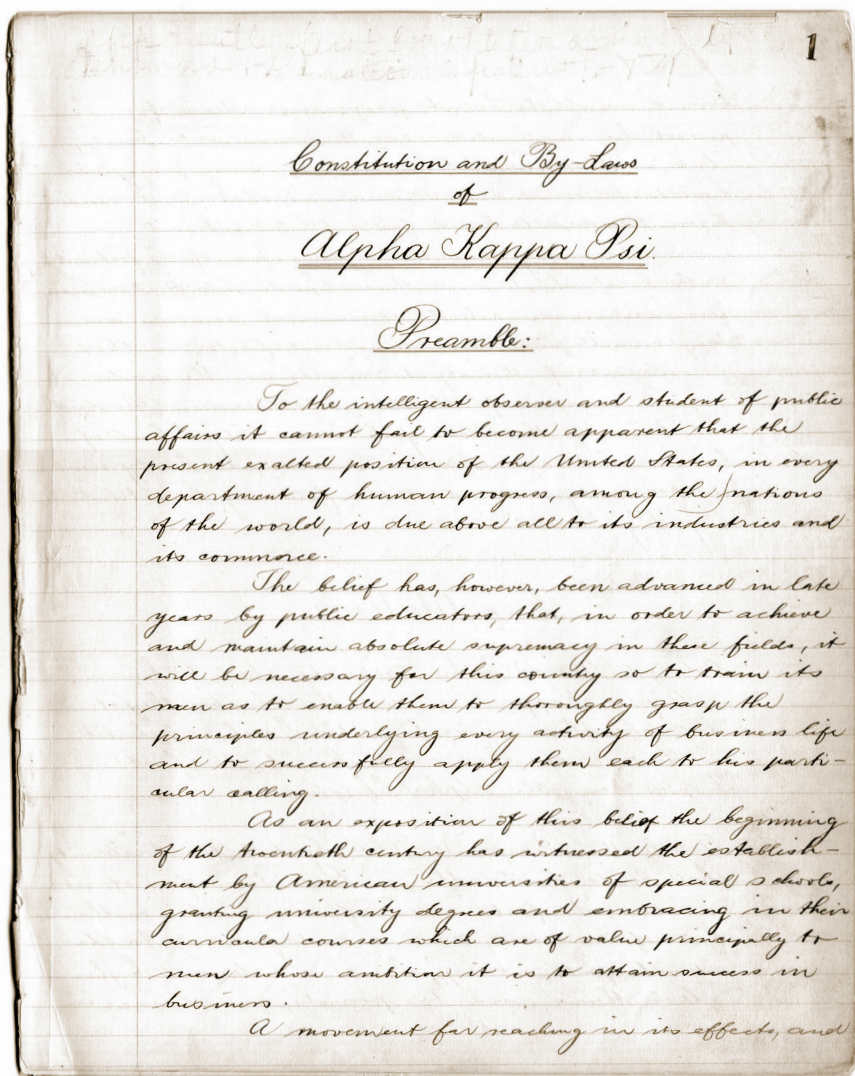 1
Constitution and By-Laws
of
Alpha Kappa Psi.
Preamble:
To the intelligent observer and student of public
affairs it cannot fail to become apparent that the
present exalted position of the United States, in every
department of human progress, among the nations
of the world, is due above all to its industries and
its commerce.
The belief has, however, been advanced in late
years by public educators, that, in order to achieve
and maintain absolute supremacy in these fields, it
will be necessary for this country so to train its
men as to enable them to thoroughly grasp the
principles underlying every activity of business life
and to successfully apply them each to his parti-
cular calling.
As an exposition of this belief the beginning
of the twentieth century has witnessed the establish-
ment by American universities of special schools,
granting university degrees and embracing in their
curricula courses which are of value principally to
men whose ambition it is to attain success in
business.
A movement far reaching in its effects, and